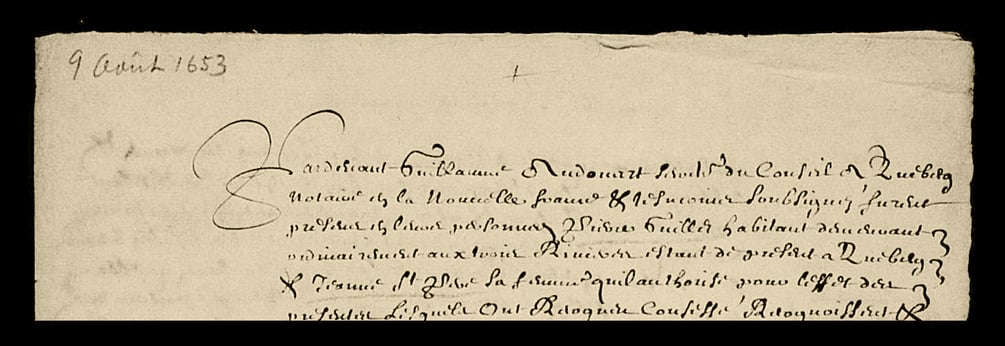 9 Août 1653
Pardevant Guillaume Audouart secrete du Conseil a Quebecq
Notaire en la Nouvelle france & tesmoins soubsignez furent
presens en leurs personnes Pierre Guillet habitant demeurant
ordinairement aux trois Rivieres estant de present a Quebecq
& Jeanne St Pere sa femme quil authorise pour leffet des
presentes Lesquels Ont Recognu Confessé Recognoissent &